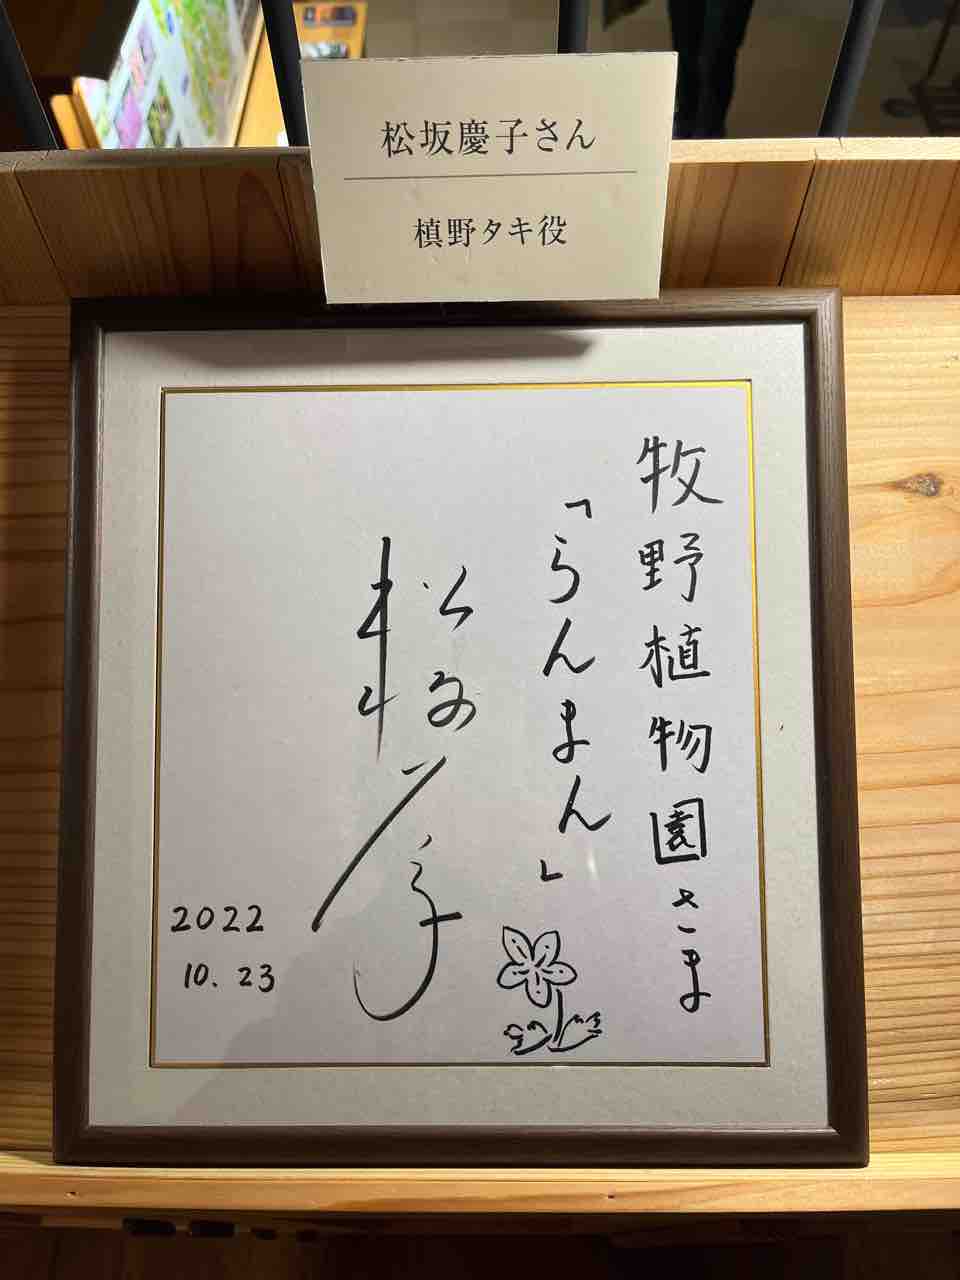 松坂慶子さん
槙野タキ役
牧野植物園さま
「らんまん」
松坂慶子
2022
10.23